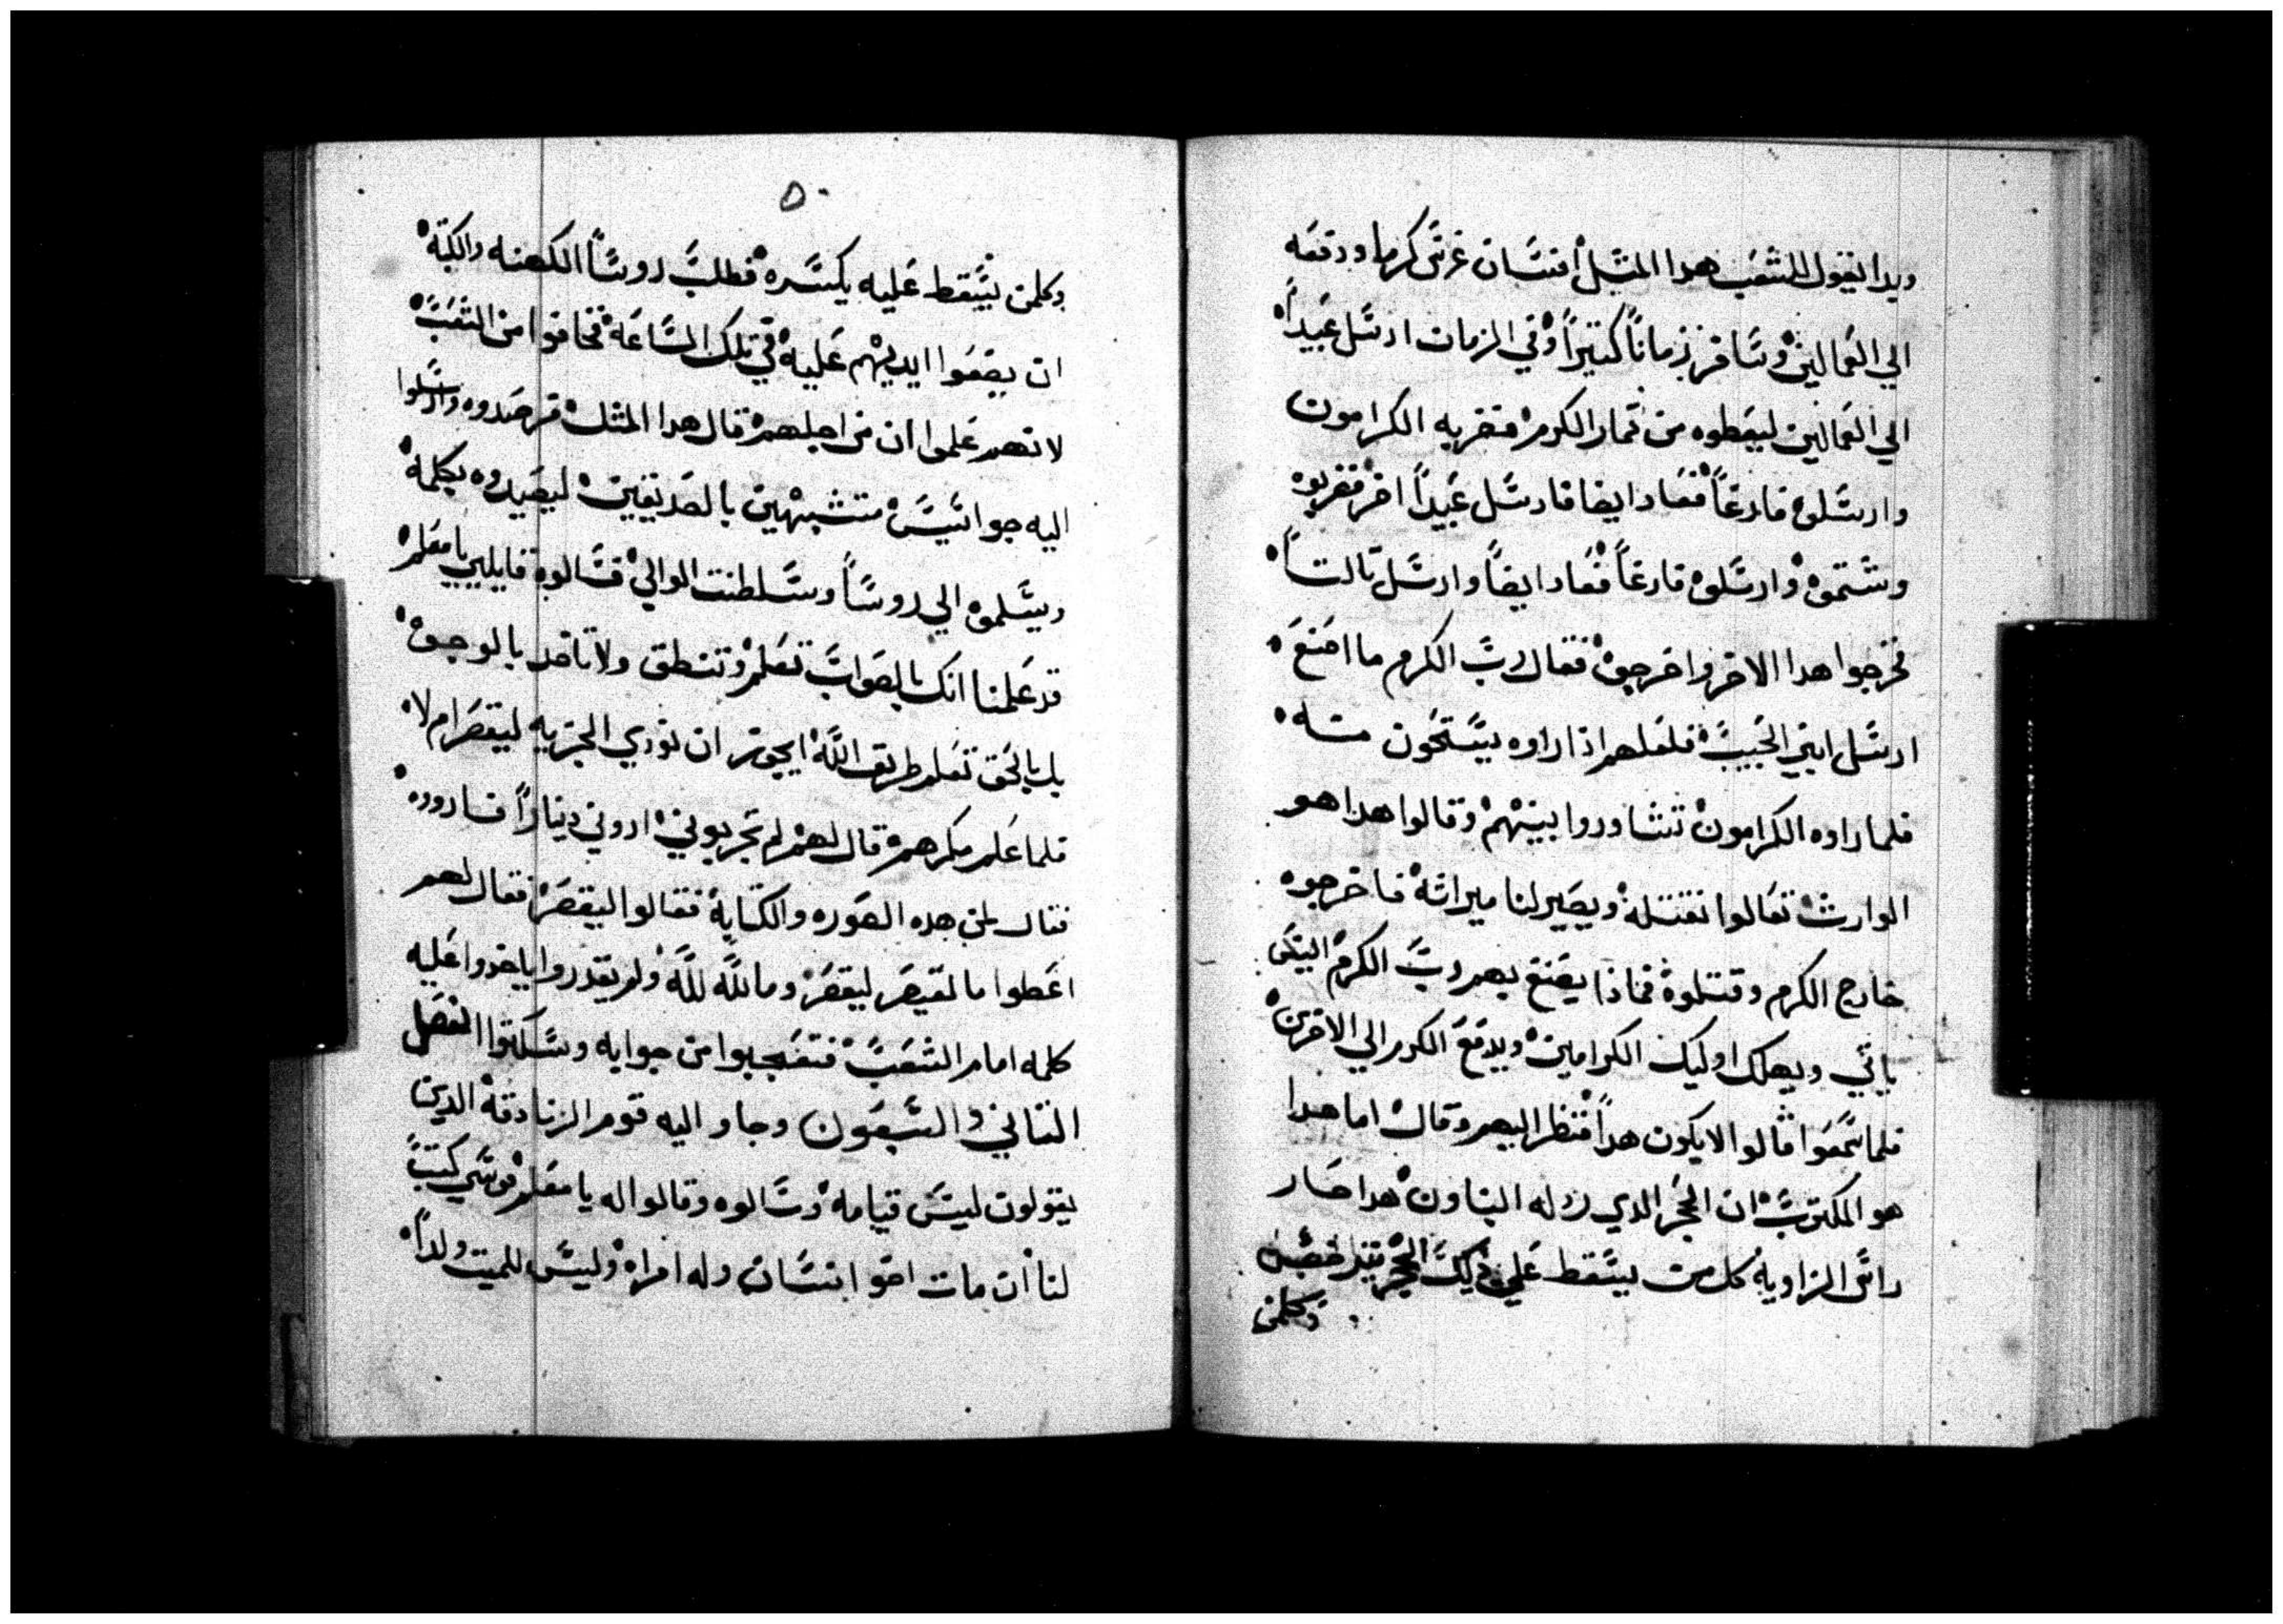 ويدا يقول للشعب هدا المثل انسان غرس كرما ودفعه
الي العمالين وسافر زماناً كتيراً وفي الزمان ارسل عبيداً
الي العمالين ليعطوه من تمار الكرم فضربه الكرامون
وارسلوه فارغاً فعاد ايضا فارسل عبيداً اخر فضربوه
وشتموه وارسلوه فارغاً فعاد ايضاً وارسل تالتاً
فخرجوا هدا الاخر واخرجوه فقال رب الكرم ما اصنع
ارسل ابني الحبيب فلعلهم اذا راوه يستحون منه
فلما راوه الكرامون تشاوروا بينهم وقالوا هدا هو
الوارث تعالوا نقتله ويصير لنا ميراثه فاخرجوه
خارج الكرم وقتلوه فماذا يصنع بهم رب الكرم اليس
ياتي ويهلك اوليك الكرامين ويدفع الكرم الي الاخرين
فلما سمعوا قالوا لا يكون هداً فنظر اليهم وقال اما هدا
هو المكتوب ان الحجر الدي رذله البناون هدا صار
راس الزاوية كل من يسقط علي ذلك الحجر يترضض
وكلمن
٥٠
وكلمن يسقط عليه يكسره فطلب روساً الكهنه والكتبة
ان يضعوا ايديهم عليه في تلك الساعة فخافوا من الشعب
لانهم علموا ان من اجلهم قال هدا المثل فرصدوه وارسلوا
اليه جواسيس متشبهين بالصديقين ليصيدوه بكلمة
ويسلموه الي روساً وسلطنت الوالي فسالوه قايليي يا معلم
قد علمنا انك بالصواب تعلم وتنطق ولا تاخد بالوجوه
بل بالحق تعلم طريق الله ايجوز ان نودي الجزيه ليقصر ام لا
فلما علم مكرهم قال لهم لم تجربوني اروني ديناراً فاروده
فقال لمن هده الصوره والكتابة فقالوا ليقصر فقال لهم
اعطوا ما لقيصر ليقصر وما لله لله ولم يقدروا ياخدوا عليه
كلمه امام الشعب فتعجبوا من جوابه وسكتوا الفصل
التاني والسبعون وجاو اليه قوم الزنادقة الدين
يقولون ليس قيامة وسالوه وقالوا له يا معلم موسي كتب
لنا ان مات اخو انسان وله امراه وليس للميت ولداً